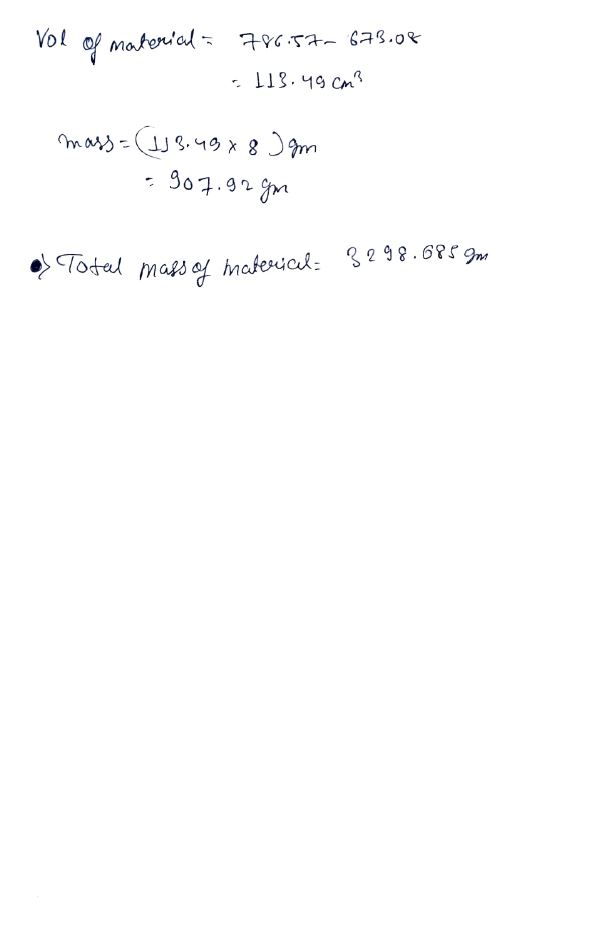 Vol of material = 786.57 - 673.08
= 113.49 cm3
mass = (113.49 x 8) gm
= 907.92 gm
Total mass of material = 3298.685 gm